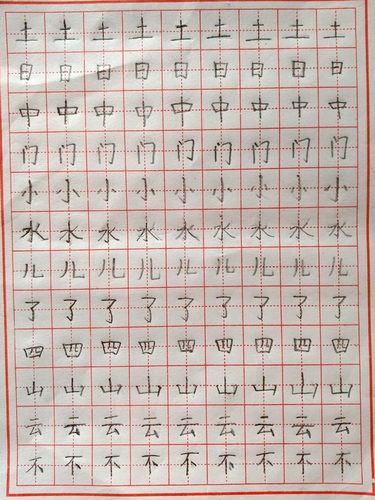 土 土 土 土 土 土 土 土 土
日 日 日 日 日 日 日 日 日
中 中 中 中 中 中 中 中 中
门 门 门 门 门 门 门 门 门
小 小 小 小 小 小 小 小 小
水 水 水 水 水 水 水 水 水
儿 儿 儿 儿 儿 儿 儿 儿 儿
了 了 了 了 了 了 了 了 了
四 四 四 四 四 四 四 四 四
山 山 山 山 山 山 山 山 山
云 云 云 云 云 云 云 云 云
不 不 不 不 不 不 不 不 不